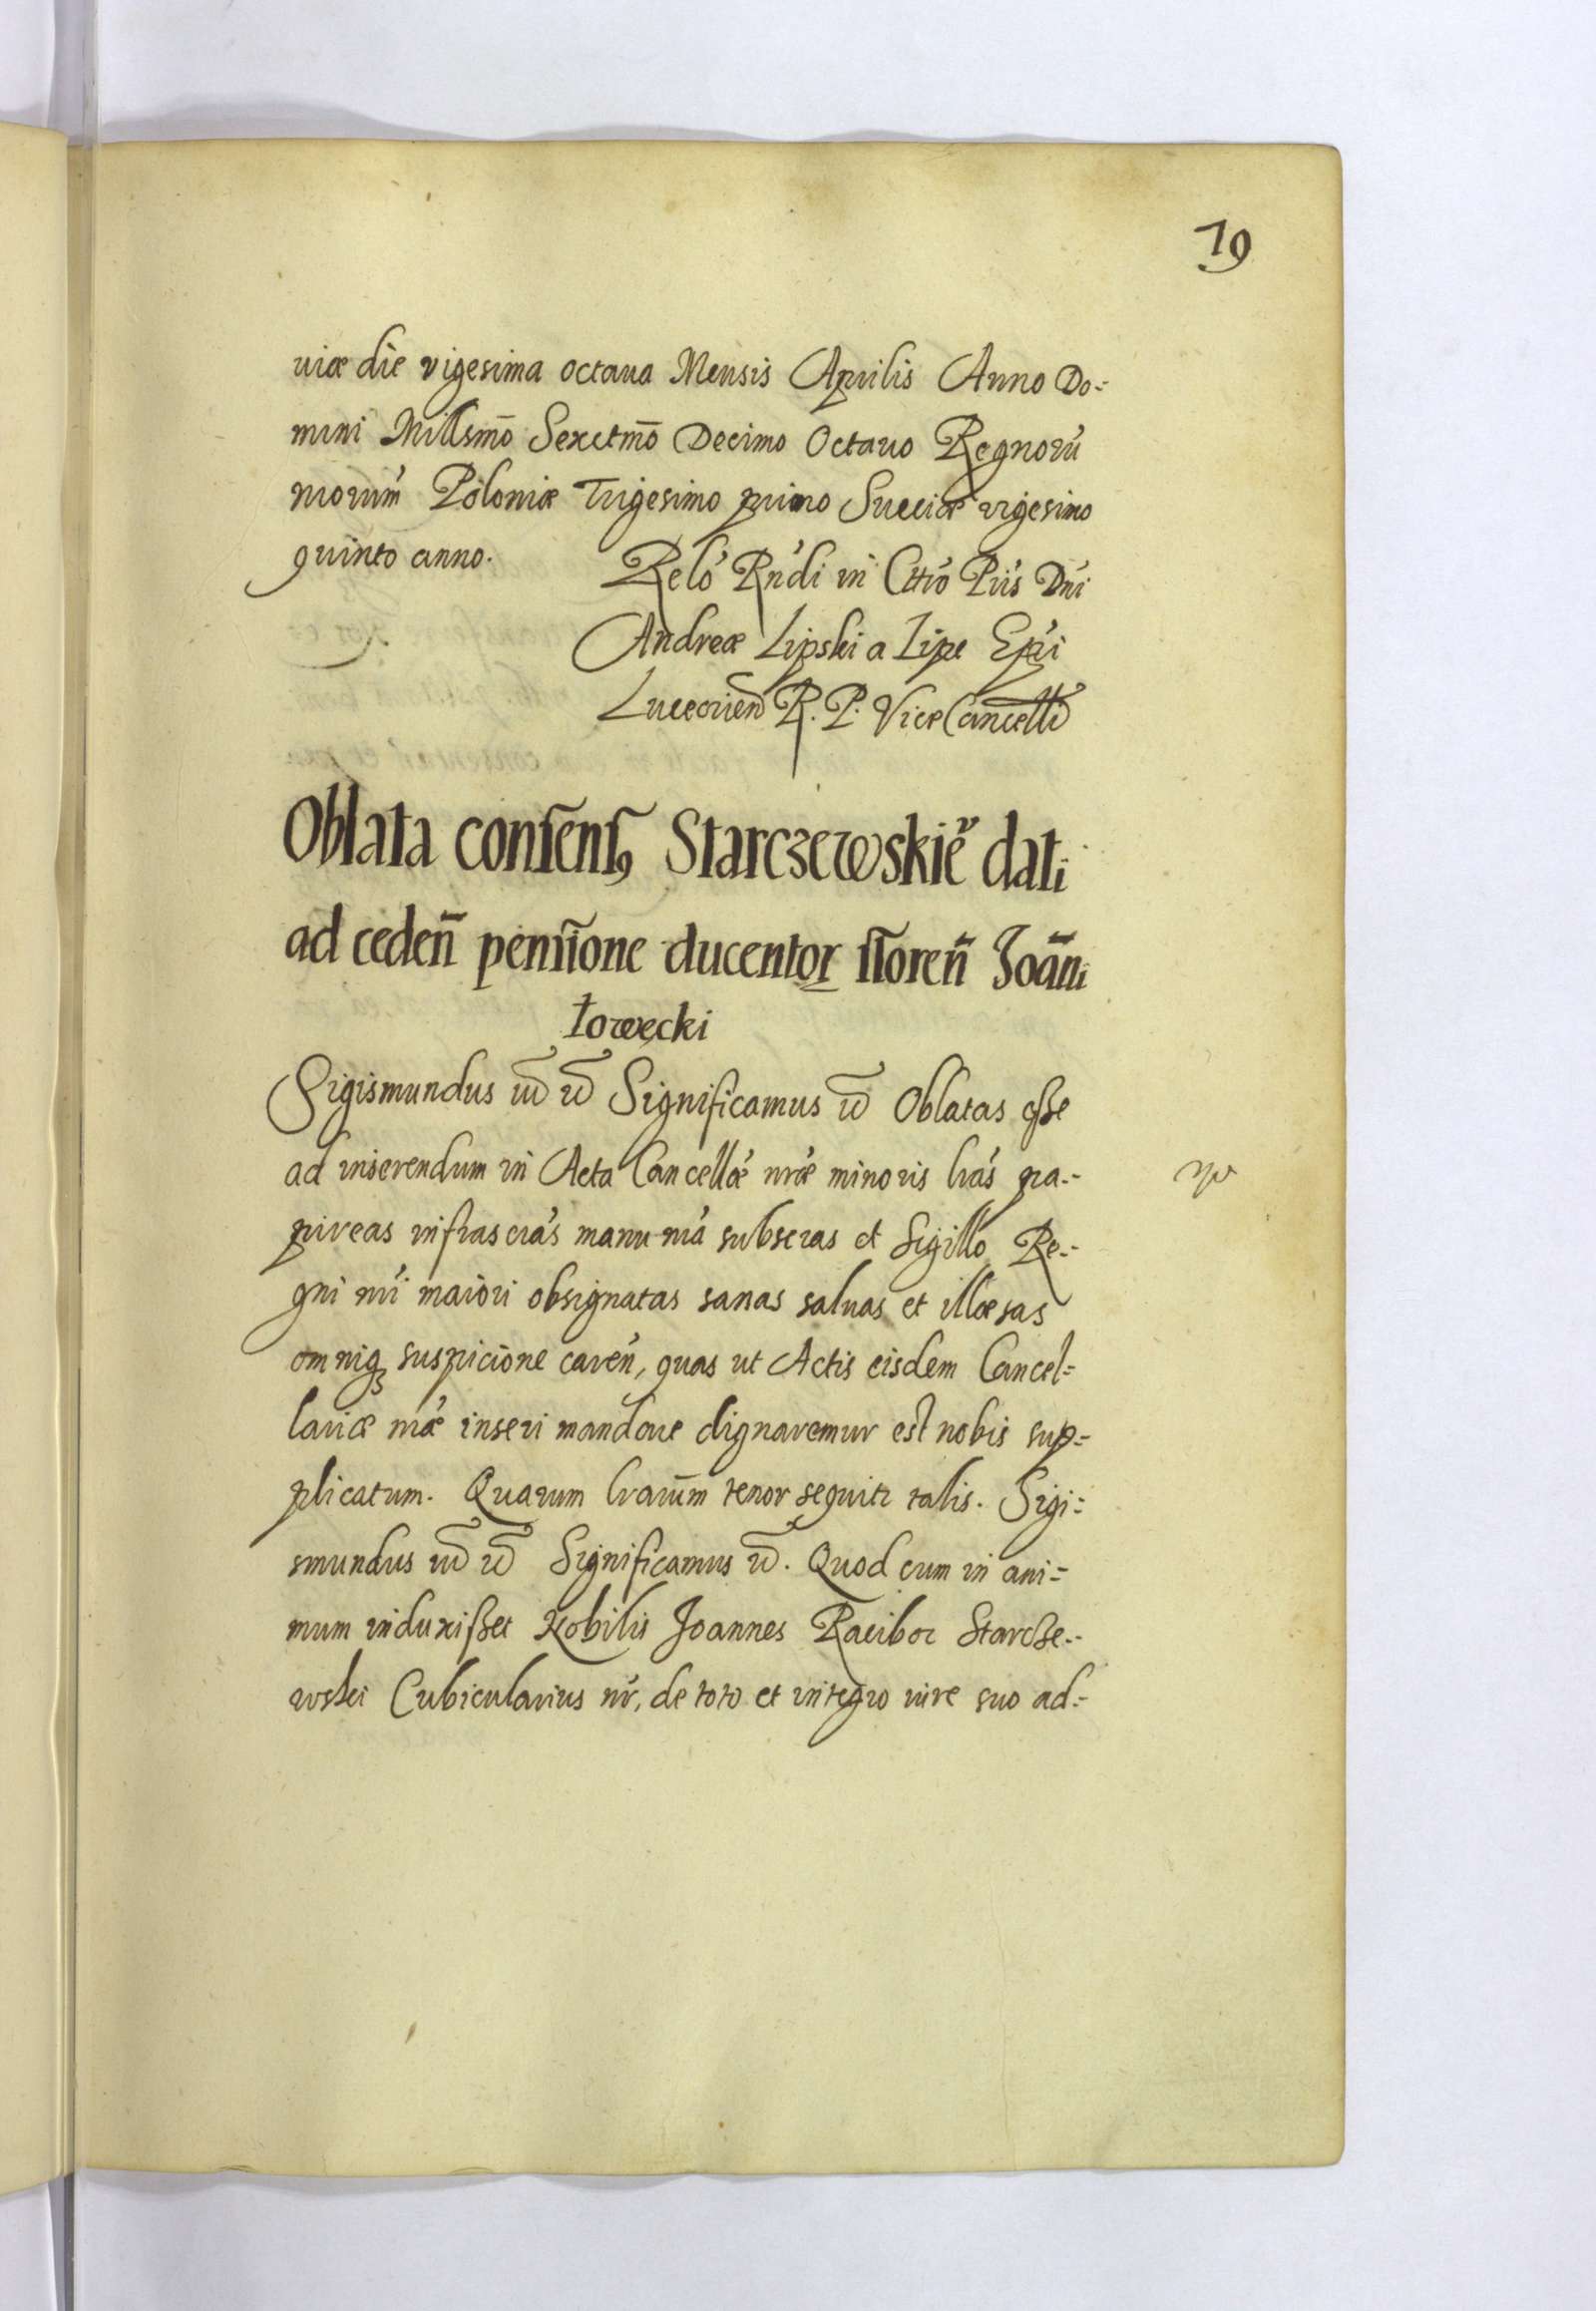 19
uiæ die vigesima octaua Mensis Aprilis Anno Do=
mini Millsmō Sexctmō Decimo Octauo Regnorū
nrorum Poloniæ Trigesimo primo Sueciæ vigesimo
quinto anno.
Relō Rndi in Chrō Pris Dni
Andreæ Lipski a Lipe Epi
Luceorien R. P. Vice Cancell
Oblata consens9 Starczewskie dati
ad ceden̄ pensione ducentor floren̄ Joān̄i
Łowęcki
Sigismundus Significamus Oblatas esse
ad inserendum in Acta Cancellæ nræ minoris lras pa=
pireas infrascras manu nra subscras et Sigillo Re=
gni nri maiori obsignatas sanas saluas et illæsas
omniq3 suspicione caren, quas ut Actis eisdem Cancel=
lariæ nræ inseri mandare dignaremur est nobis sup=
plicatum. Quarum lrarūm tenor sequitr talis. Sigi=
smundus Significamus. Quod cum in ani=
mum induxisset Nobilis Joannes Racibor Starcze=
wski Cubicularius nr, de toto et integro iure suo ad=